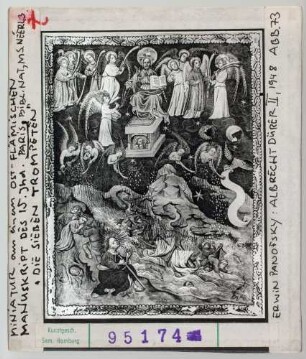 MINIATUR aus einem OST-FLÄMISCHEN
MANUSKRIPT DES 15. Jhd. PARIS, BIBL. NAT, MS. NÉERL. 3
"DIE SIEBEN TROMPETEN"
ERWIN PANOFSKY: ALBRECHT DÜRER II, 1948 ABB 73
Kunstgesch.
Sem. Hamburg
95174